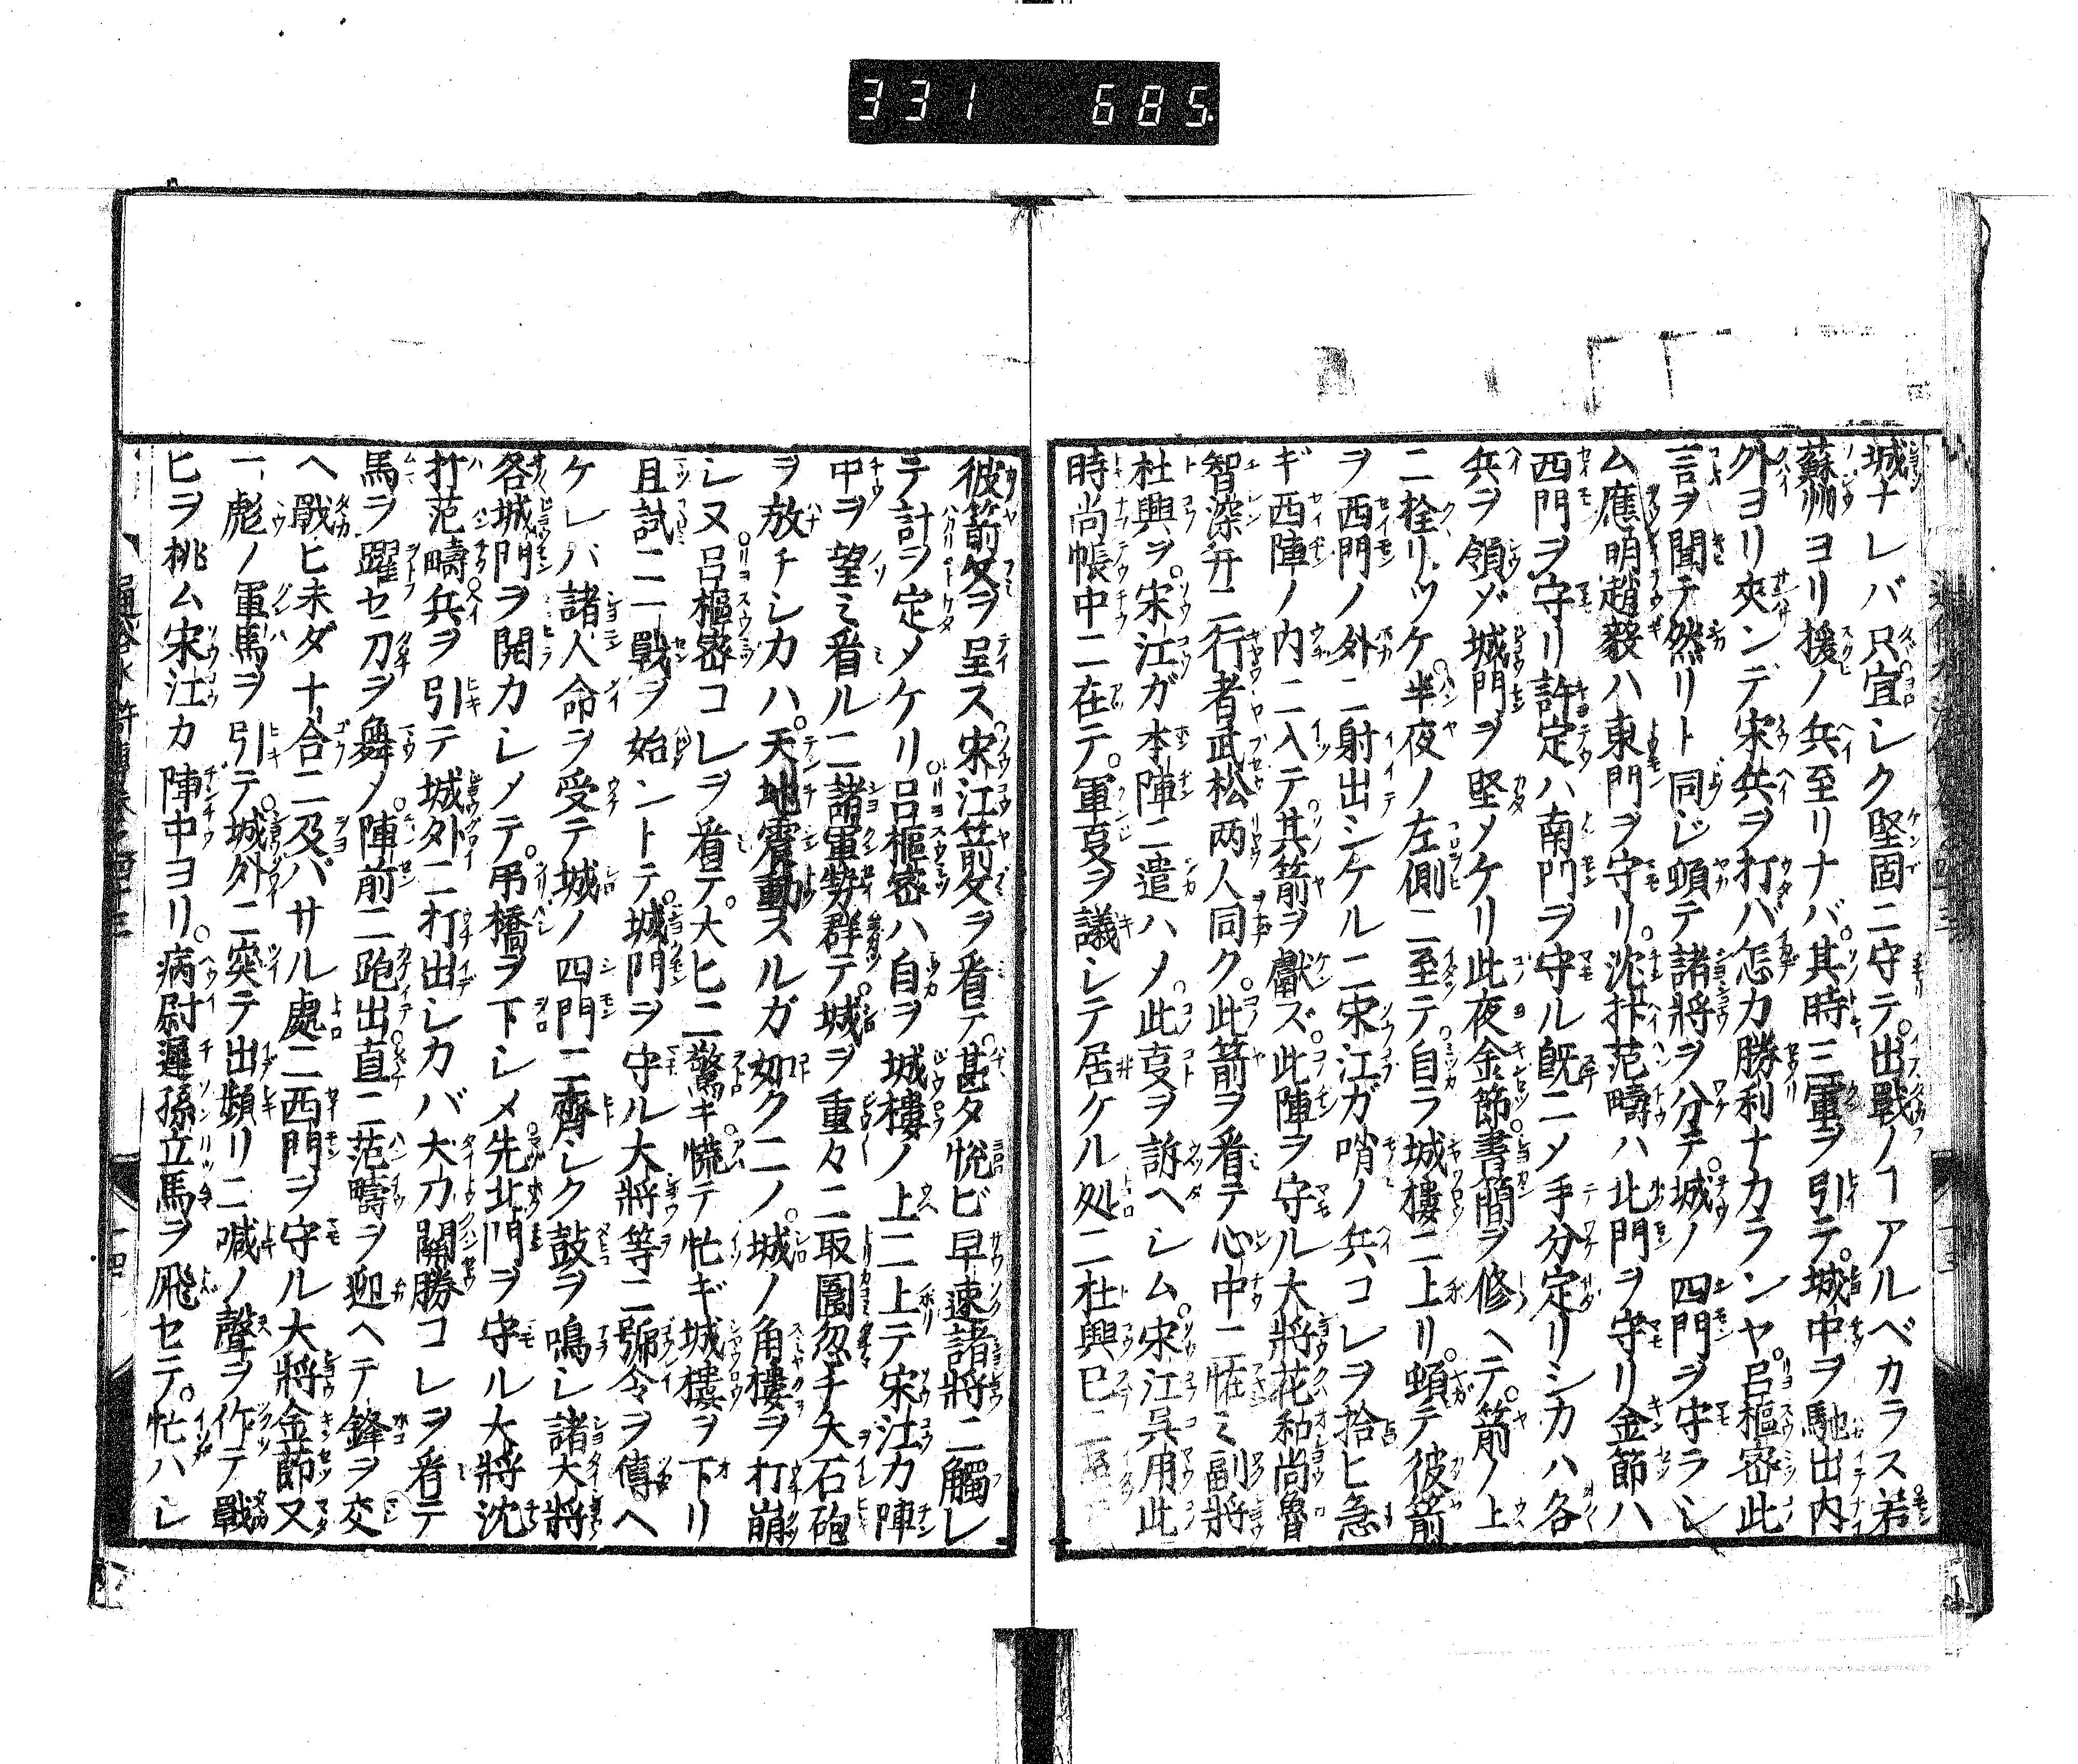 331 685
城ナレバ只宜シク堅固ニ守テ。出戰ノヿアルベカラス若
蘇州ヨリ援ノ兵至リナバ。其時三軍ヲ引テ。城中ヲ馳出内
外ヨリ夾ンデ宋兵ヲ打バ怎カ勝利ナカランヤ。呂樞密此
言ヲ聞テ然リト同じ頓テ諸將ヲ分テ。城ノ四門ヲ守ラシ
ム應明趙毅ハ東門ヲ守リ。沈抃范疇ハ北門ヲ守リ金節ハ
西門ヲ守リ許定ハ南門ヲ守ル既ニメ手分定リシカハ各
兵ヲ領ソ城門ヲ堅メケリ此夜金節書簡ヲ修ヘテ。箭ノ上
ニ栓リツケ半夜ノ左側ニ至テ自ラ城樓ニ上リ。頓テ彼箭
ヲ西門ノ外ニ射出シケルニ宋江ガ哨ノ兵コレヲ拾ヒ急
ギ西陣ノ内ニ入テ其箭ヲ獻ズ。此陣ヲ守ル大將花和尚魯
智深并ニ行者武松两人同ク。此箭ヲ看テ心中ニ恠ミ副將
杜興ヲ。宋江ガ本陣ニ遣ハメ。此叓ヲ訴ヘシム。宋江呉用此
時尚帳中ニ在テ。軍叓ヲ議シテ居ケル処ニ杜興已ニ
彼箭文ヲ呈ス宋江箭文ヲ看テ。甚タ悦ビ早速諸將ニ觸レ
テ計ヲ定メケリ。呂樞密ハ自ヲ城樓ノ上ニ上テ宋江カ陣
中ヲ望ミ看ルニ諸軍勢群テ。城ヲ重々ニ取圍忽チ矢石砲
ヲ放チシカハ。天地震動スルガ如クニノ。城ノ角樓ヲ打崩
レ又呂樞密コレヲ看テ。大ヒニ驚ギ慌テ忙ギ城樓ヲ下リ
且試ニ一戰ヲ始ントテ。城門ヲ守ル大將等ニ號令ヲ傳ヘ
ケレバ諸人命ヲ受テ城ノ四門ニ齊シク鼓ヲ鳴シ諸大將
各城門ヲ開カシメテ。吊橋ヲ下シメ先北門ヲ守ル大將沈
抃范疇兵ヲ引テ城外ニ打出シカバ大刀關勝コレヲ看テ
馬ヲ躍セ刀ヲ舞メ。陣前ニ跑出直ニ范疇ヲ迎ヘテ鋒ヲ交
ヘ戰ヒ未ダ十合ニ及バサル處ニ西門ヲ守ル大將金節又
一彪ノ軍馬ヲ引テ。城外ニ突テ出頻リニ喊ノ聲ヲ作テ戰
ヒヲ挑ム宋江カ陣中ヨリ。病尉遲孫立馬ヲ飛セテ。忙ハシ